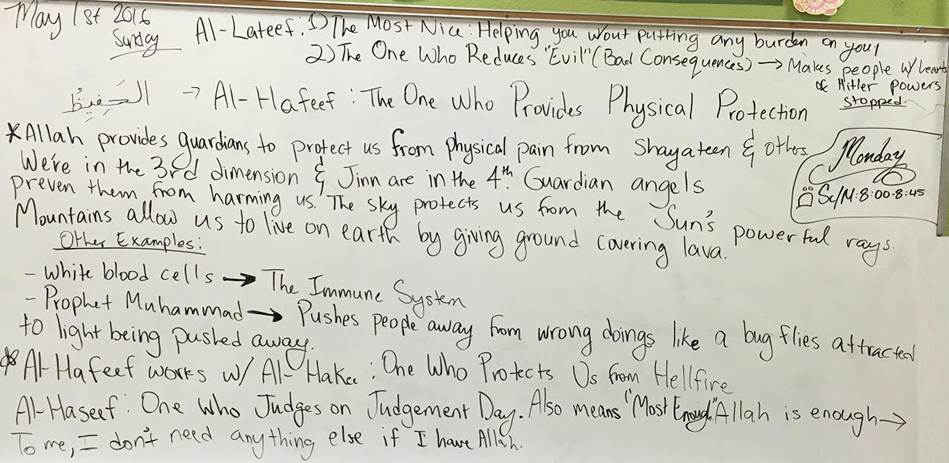 May 1st 2016
Sunday
Al-Lateef: 1) The Most Nice: Helping you w/out putting any burden on you!
2) The One Who Reduces "Evil" (Bad Consequences) → Makes people w/
& Hitler powers
stopped
الحَفِيظُ → Al-Hafeef: The One Who Provides Physical Protection
*Allah provides guardians to protect us from physical pain from Shayateen & others
We're in the 3rd dimension & Jinn are in the 4th. Guardian angels
preven them from harming us. The sky protects us from the Sun's powerful rays.
Mountains allow us to live on earth by giving ground covering lava.
Monday
Sc/M: 8:00-8:45
Other Examples:
- White blood cells → The Immune System
- Prophet Muhammad → Pushes people away from wrong doings like a bug flies attracted
to light being pushed away.
Al-Hafeef works w/ Al- : One Who Protects Us from Hellfire
Al-Haseef: One Who Judges on Judgement Day. Also means "Most Enough" Allah is enough →
To me, I don't need anything else if I have Allah.